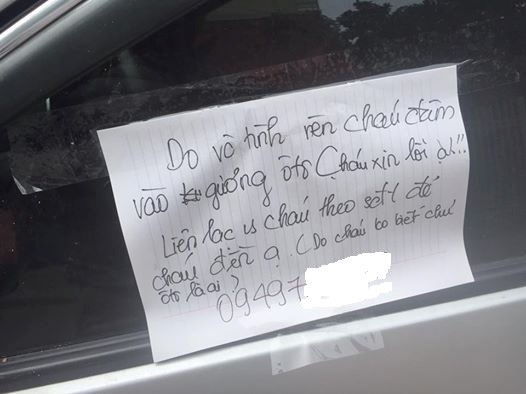 Do vô tình nên cháu đâm
vào gương ôtô (Cháu xin lỗi ạ!!
Liên lạc vs cháu theo sđt để
cháu đền ạ. (Do cháu ko biết chủ
ôtô là ai)
09497